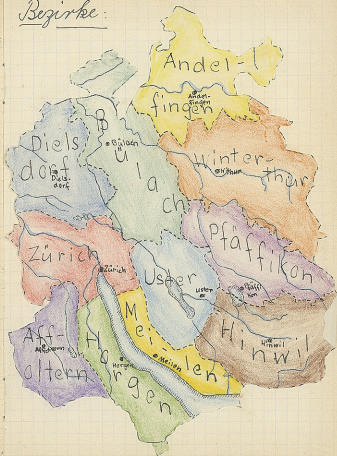 Bezirke:
Andel-
fingen
Andel-
fingen
Bülach
Bülach
Diels
dorf
Diels-
dorf
Winter-
thur
W'thur
Pfäffikon
Pfäffi-
kon
Zürich
Zürich
Uster
Uster
Hinwil
Hinwil
Mei-
len
Meilen
Aff-
oltern
Affoltern
Horgen
Horgen